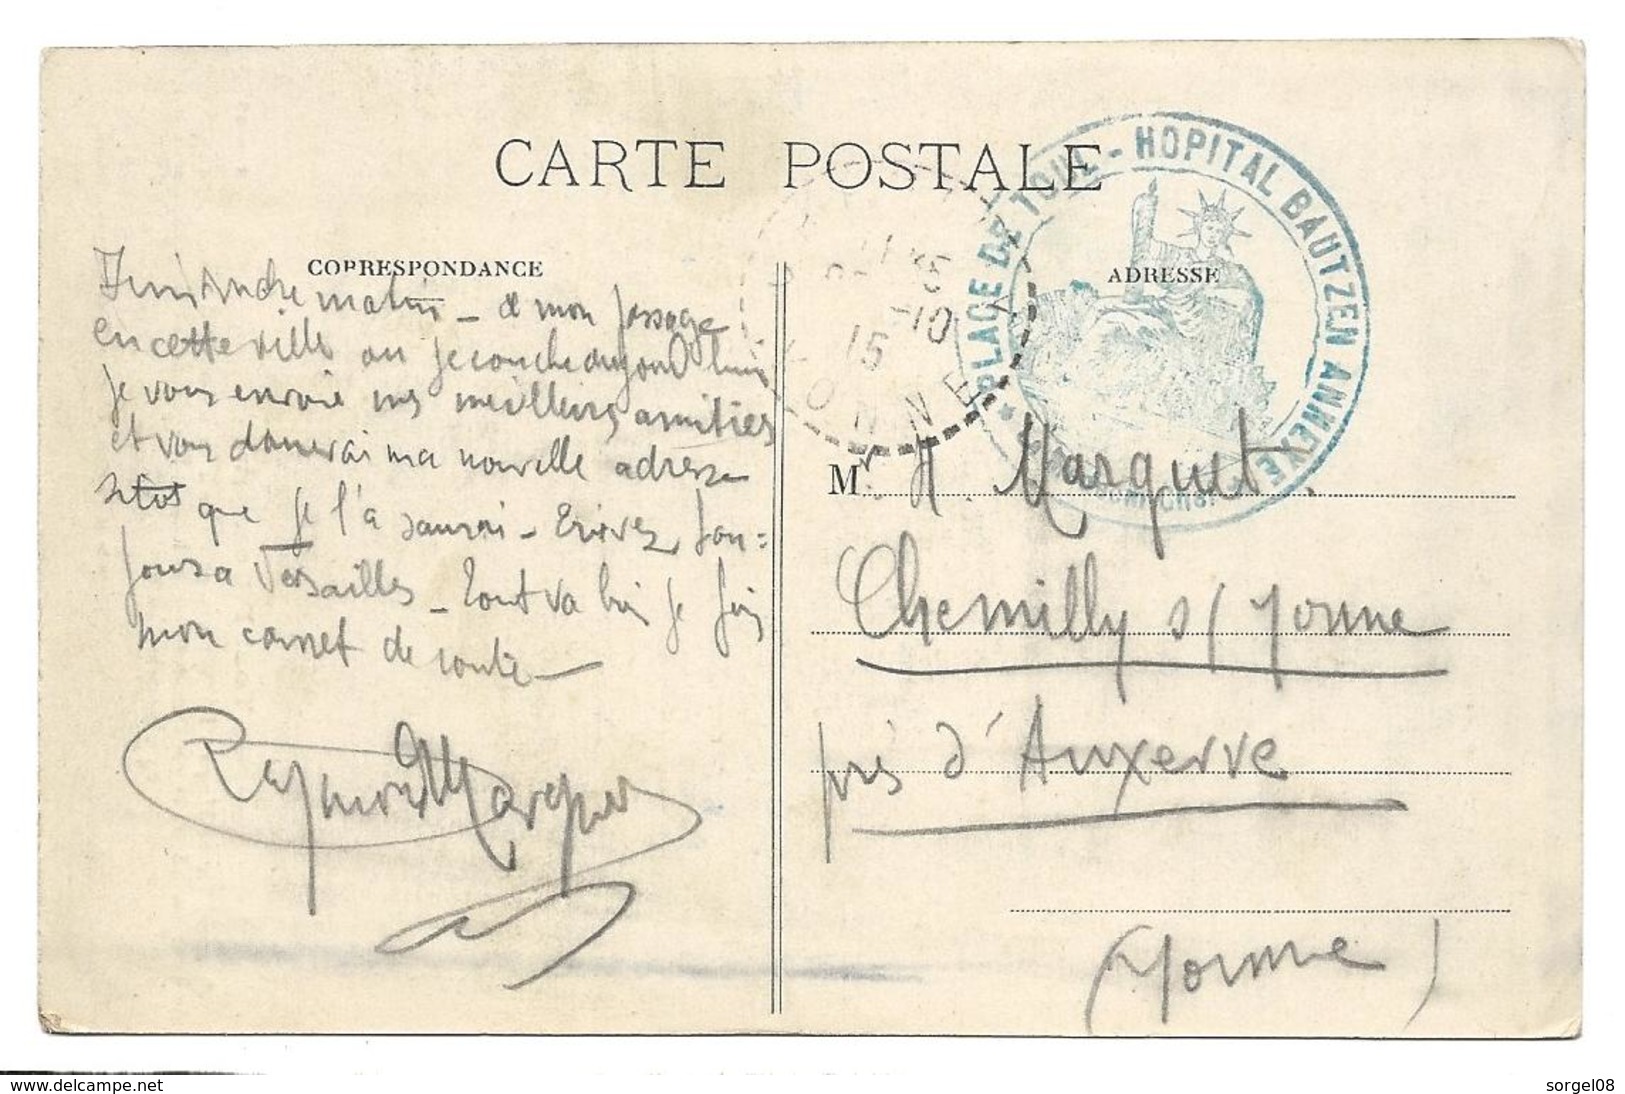 CARTE POSTALE
CORRESPONDANCE
matin - de mon passage
en cette ville ou je couche aujourd'hui
je vous envoie mes meilleures amitiés
et vous donnerai ma nouvelle adresse
sitot que je l'a saurai - Ecrivez tou=
jours a Versailles - Tout va bien je suis
mon carnet de route -
Raymond Marquet
PLACE DE TOUL - HOPITAL BAUTZEN ANNEXE
15
-10
15
YONNE
ADRESSE
M A. Marquet.
Chemilly s/ Yonne
près d'Auxerre
(Yonne)
www.delcampe.net
sorgel08